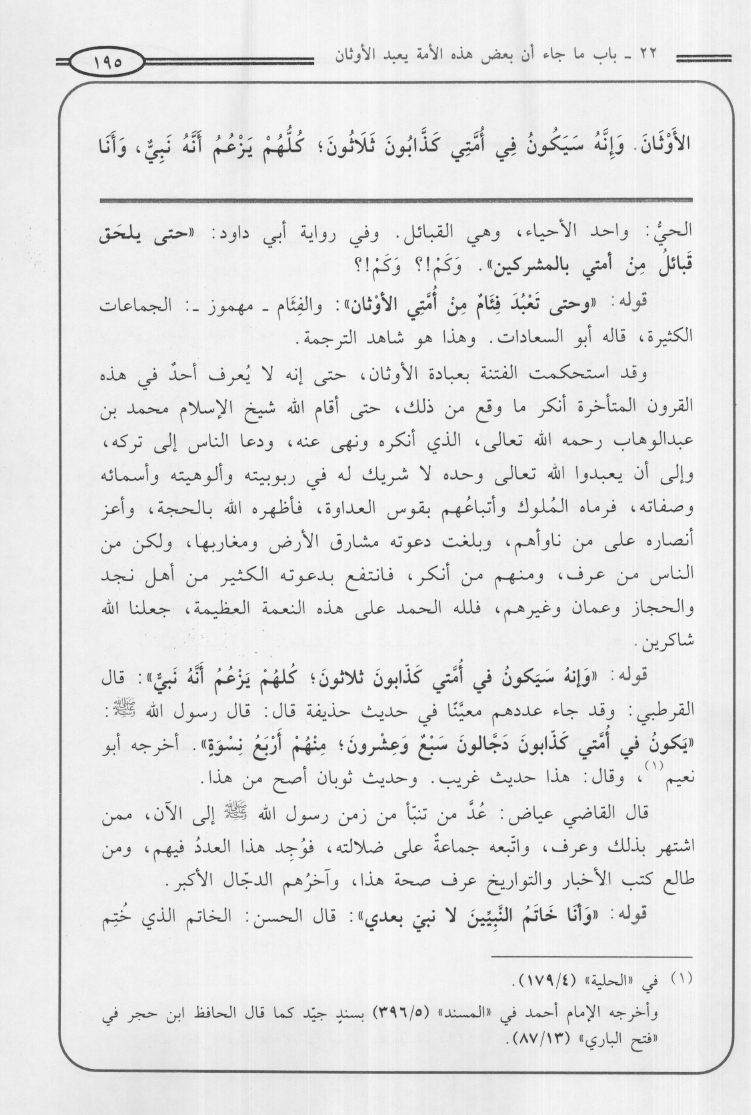 ٢٢ ـ باب ما جاء أن بعض هذه الأمة يعبد الأوثان
١٩٥
الأَوْثَانَ. وَإِنَّهُ سَيَكُونُ فِي أُمَّتِي كَذَّابُونَ ثَلَاثُونَ؛ كُلُّهُمْ يَزْعُمُ أَنَّهُ نَبِيٌّ، وَأَنَا
الحيُّ: واحد الأحياء، وهي القبائل. وفي رواية أبي داود: «حتى يلحَق
قَبائلُ مِنْ أمتي بالمشركين». وَكَمْ!؟ وَكَمْ!؟
قوله: «وحتى تَعْبُدَ فِئَامٌ مِنْ أُمَّتِي الأوْثان»: والفِئَام ـ مهموز ـ: الجماعات
الكثيرة، قاله أبو السعادات. وهذا هو شاهد الترجمة.
وقد استحكمت الفتنة بعبادة الأوثان، حتى إنه لا يُعرف أحدٌ في هذه
القرون المتأخرة أنكر ما وقع من ذلك، حتى أقام الله شيخ الإسلام محمد بن
عبدالوهاب رحمه الله تعالى، الذي أنكره ونهى عنه، ودعا الناس إلى تركه،
وإلى أن يعبدوا الله تعالى وحده لا شريك له في ربوبيته وألوهيته وأسمائه
وصفاته، فرماه المُلوك وأتباعُهم بقوس العداوة، فأظهره الله بالحجة، وأعز
أنصاره على من ناوأهم، وبلغت دعوته مشارق الأرض ومغاربها، ولكن من
الناس من عرف، ومنهم من أنكر، فانتفع بدعوته الكثير من أهل نجد
والحجاز وعمان وغيرهم، فلله الحمد على هذه النعمة العظيمة، جعلنا الله
شاكرين.
قوله: «وَإنهُ سَيَكونُ في أُمَّتي كَذّابونَ ثلاثونَ؛ كُلهُمْ يَزْعُمُ أَنَّهُ نَبيٌّ»: قال
القرطبي: وقد جاء عددهم معيَّنًا في حديث حذيفة قال: قال رسول الله ﷺ:
«يَكونُ في أُمَّتي كَذّابونَ دَجَّالونَ سَبْعٌ وَعِشْرونَ؛ مِنْهُمْ أَرْبَعُ نِسْوَةٍ». أخرجه أبو
نعيم(١)، وقال: هذا حديث غريب. وحديث ثوبان أصح من هذا.
قال القاضي عياض: عُدَّ من تنبّأ من زمن رسول الله ﷺ إلى الآن، ممن
اشتهر بذلك وعرف، واتّبعه جماعةٌ على ضلالته، فوُجِد هذا العددُ فيهم، ومن
طالع كتب الأخبار والتواريخ عرف صحة هذا، وآخرُهم الدجّال الأكبر.
قوله: «وَأنَا خَاتَمُ النَّبِيِّينَ لا نبيّ بعدي»: قال الحسن: الخاتم الذي خُتِم
(١) في «الحلية» (١٧٩/٤).
وأخرجه الإمام أحمد في «المسند» (٣٩٦/٥) بسندٍ جيّد كما قال الحافظ ابن حجر في
«فتح الباري» (٨٧/١٣).